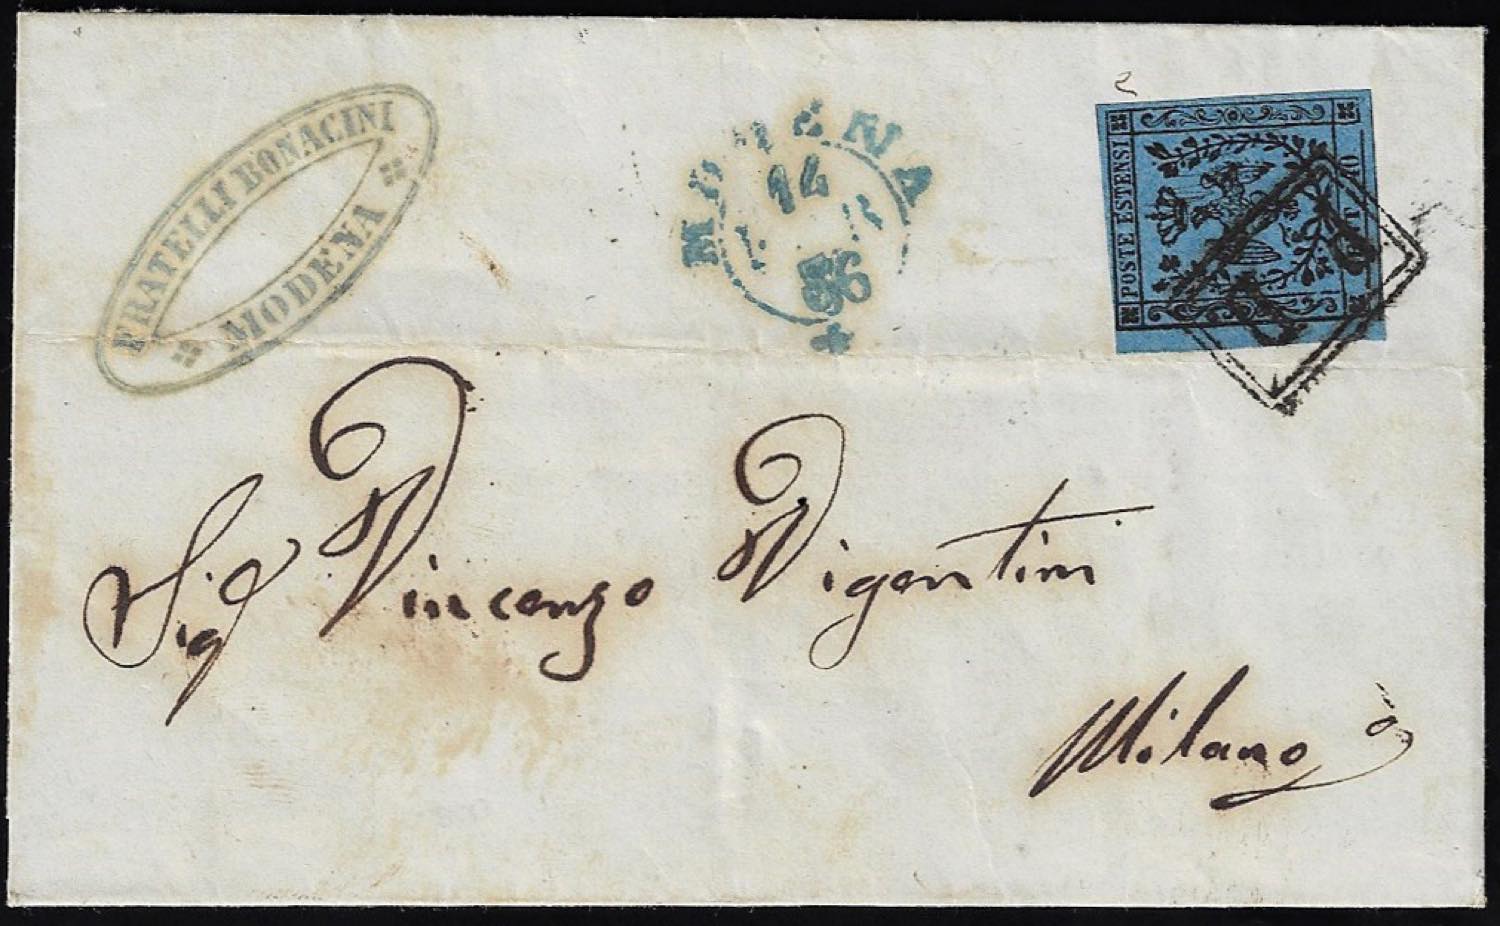 FRATELLI BONACINI
MODENA
MODENA
14
56
POSTE ESTENSI
40
P D
Sigr Vincenzo Vigentini
Milano